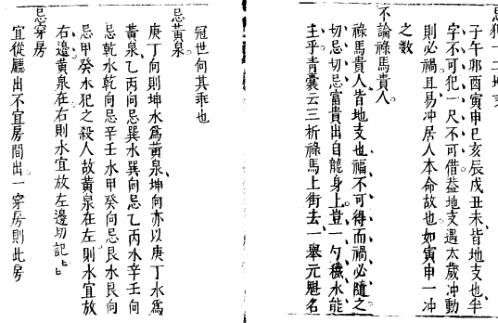 忌犯十二地支
子午卯酉寅申巳亥辰戌丑未皆地支也半
字不可犯一尺不可借葢地支遇太歲冲動
則必禍且易冲居人本命故也如寅申一冲
之数
不論祿馬貴人
祿馬貴人皆地支也福不可得而禍必隨之
切忌切忌富貴出自龍身上豈一勺穢水能
主乎青囊云三折祿馬上街去一舉元魁名
冠世何其乖也
忌黄泉
庚丁向則坤水為黄泉坤向亦以庚丁水為
黄泉乙丙向忌巽水巽向忌乙丙水辛壬向
忌乾水乾向忌辛壬水甲癸向忌艮水艮向
忌甲癸水犯之殺人故黄泉在左則水宜放
右邉黄泉在右則水宜放左邉切記匕匕
忌穿房
宜從廳出不宜房間出一穿房則此房